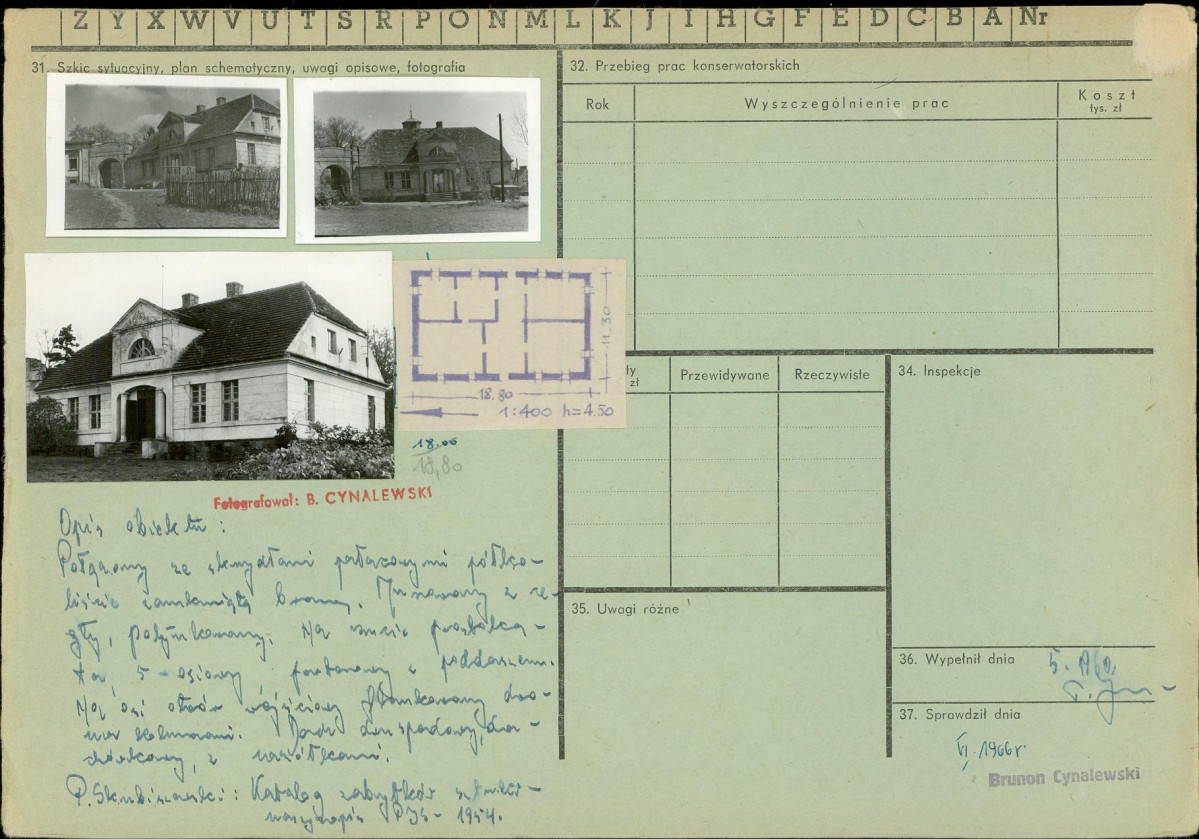 Z Y X W V U T S R P O N M L K J I H G F E D C B A Nr
31. Szkic sytuacyjny, plan schematyczny, uwagi opisowe, fotografia
18.80
11.30
1:400 h=4.50
18.00
18,80
Fotografował: B. CYNALEWSKI
Opis obiektu:
Połączony ze skrzydłami pałacowymi półko-
liście zamkniętą bramą. Murowany z ce-
gły, potynkowany. Na rzucie prostoką-
ta, 5-osiowy parterowy z poddaszem.
Na osi otwór wejściowy flankowany dwo-
ma kolumnami. Dach dwuspadowy, da-
chówkowy, z naczółkami.
P. Skubiszewski: Katalog zabytków sztuki
maszynopis PIS - 1954.
32. Przebieg prac konserwatorskich
Rok
Wyszczególnienie prac
Koszt
tys. zł
zł
Przewidywane
Rzeczywiste
34. Inspekcje
35. Uwagi różne
36. Wypełnił dnia
37. Sprawdził dnia
VI. 1966r.
Brunon Cynalewski